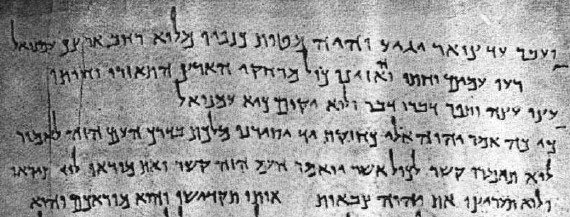 ועבר עד צואר יגיע והיה מטות כנפיו מלוא רחב ארצך עמנואל
רעו עמים וחתו והאזינו כול מרחקי הארץ התאזורו וחותו
עוצו עצה ותפר דברו דבר ולוא יקום כיא עמנואל
כי כוה אמר יהוה אלי כחזקת יד יסירנו מלכת בדרך העם הזה לאמור
לוא תאמרו קשר לכול אשר יואמר העם הזה קשר ואת מוראו לוא תיראו
ולוא תעריצו את יהוה צבאות אותו תקדישו והוא מוראכם והוא